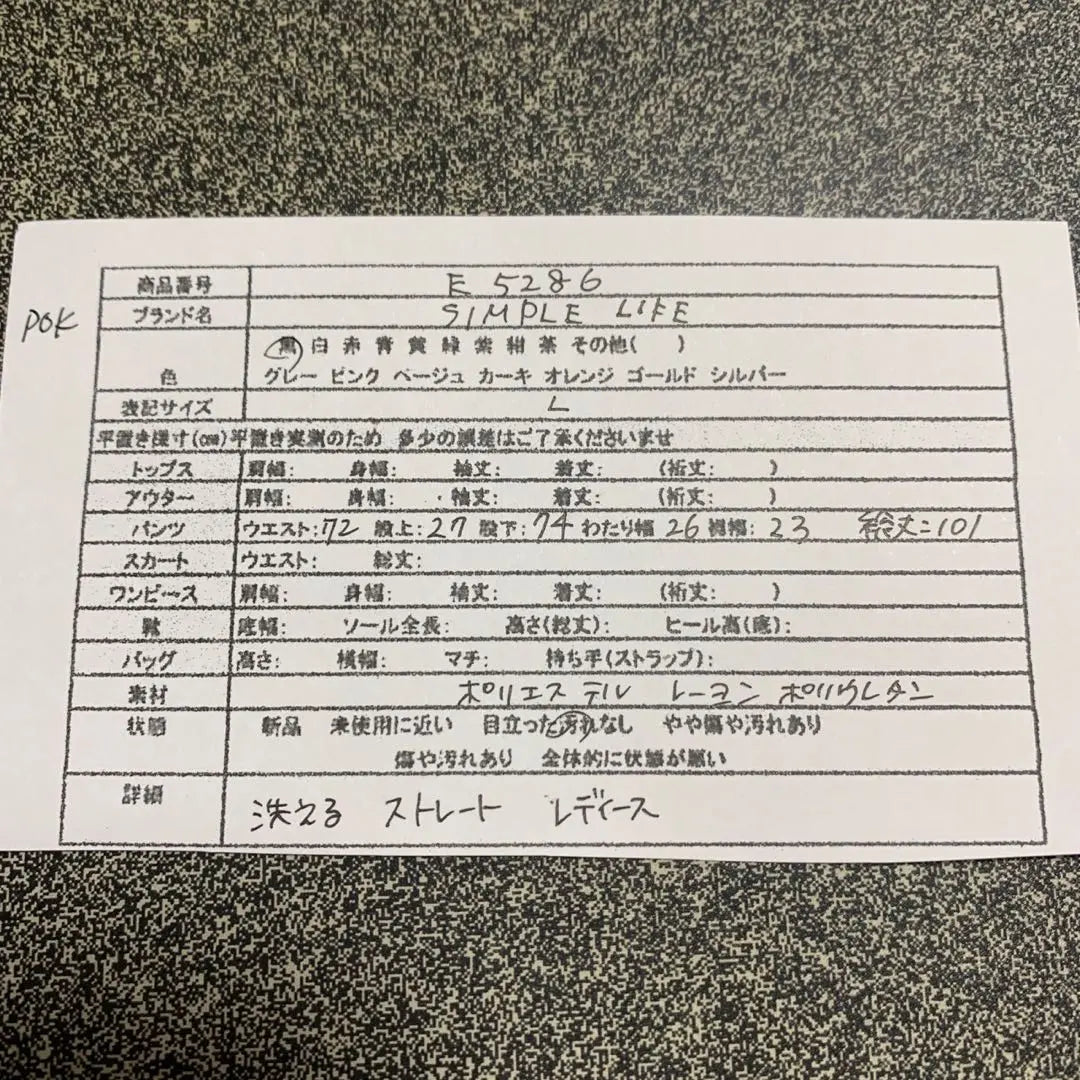 POK
商品番号 E 5286
ブランド名 SIMPLE LIFE
黒 白 赤 青 黄 緑 紫 紺 茶 その他( )
色 グレー ピンク ベージュ カーキ オレンジ ゴールド シルバー
表記サイズ L
平置き採寸(cm)平置き実測のため 多少の誤差はご了承くださいませ
トップス 肩幅: 身幅: 袖丈: 着丈: (裄丈: )
アウター 肩幅: 身幅: 袖丈: 着丈: (裄丈: )
パンツ ウエスト:72 股上:27 股下:74 わたり幅 26 裾幅: 23 総丈:101
スカート ウエスト: 総丈:
ワンピース 肩幅: 身幅: 袖丈: 着丈: (裄丈: )
靴 底幅: ソール全長: 高さ(総丈): ヒール高(底):
バッグ 高さ: 横幅: マチ: 持ち手(ストラップ):
素材 ポリエステル レーヨン ポリウレタン
状態 新品 未使用に近い 目立った汚れなし やや傷や汚れあり
傷や汚れあり 全体的に状態が悪い
詳細 洗える ストレート レディース